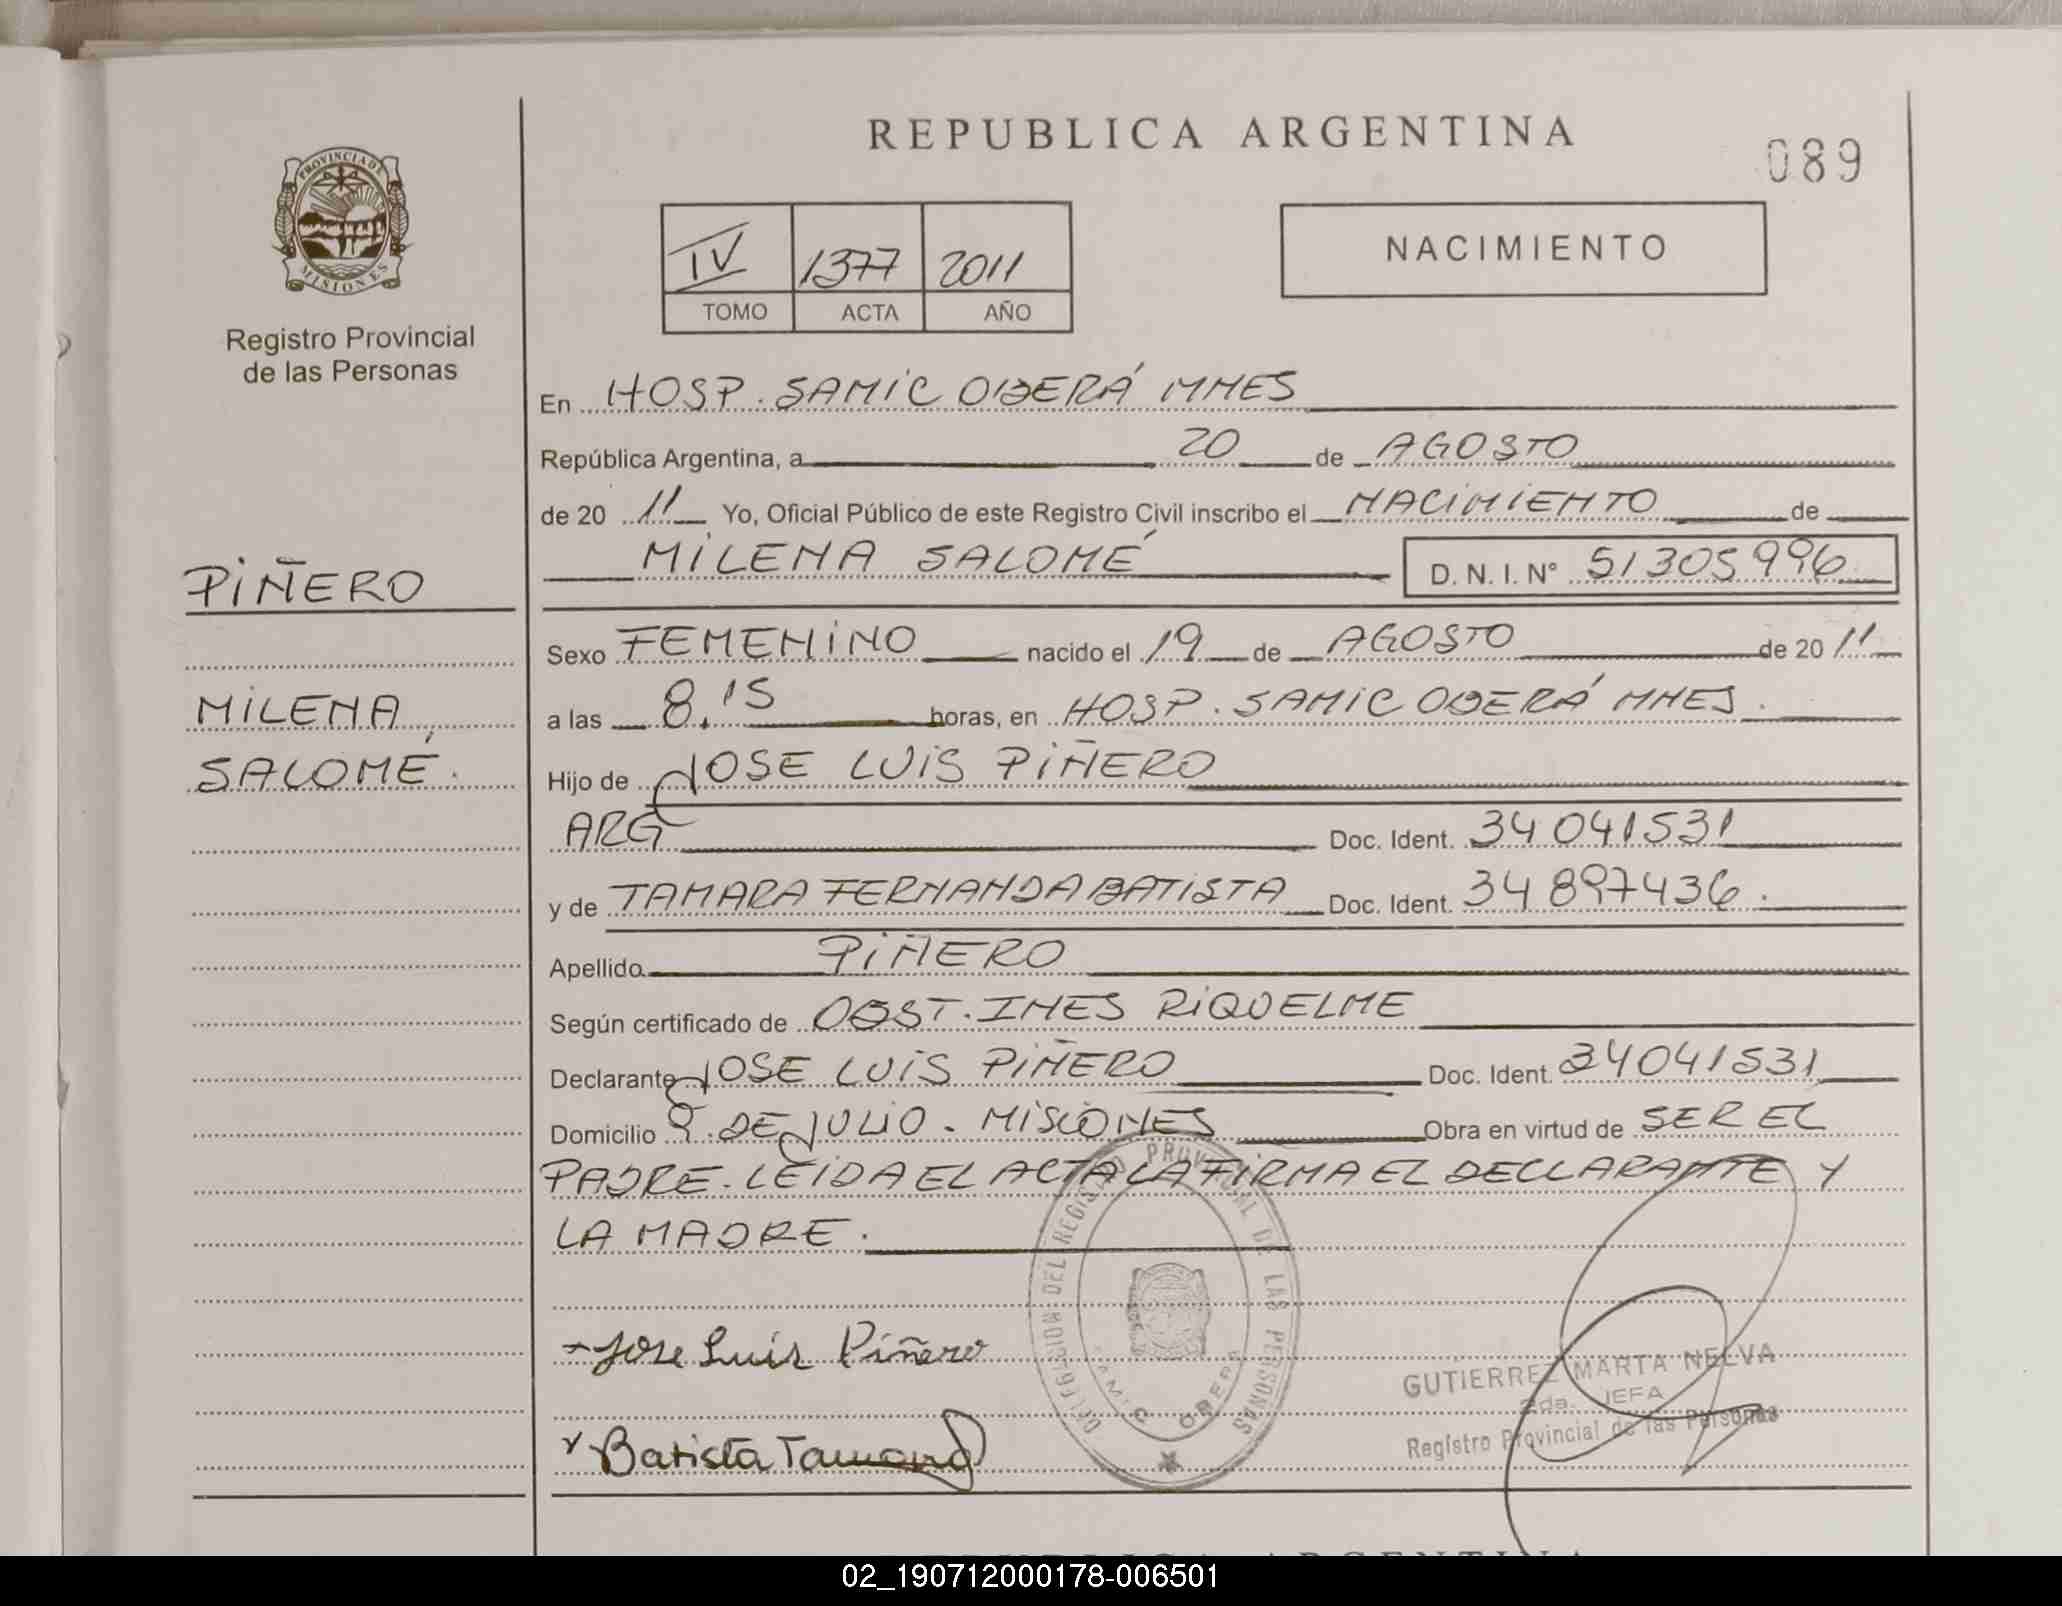 REPUBLICA ARGENTINA
089
PROVINCIA DE MISIONES
Registro Provincial
de las Personas
IV 1377 2011
TOMO ACTA AÑO
NACIMIENTO
En HOSP. SAMIC OBERÁ MNES
República Argentina, a 20 de AGOSTO
de 20 11 Yo, Oficial Público de este Registro Civil inscribo el NACIMIENTO de
MILENA SALOMÉ D. N. I. N° 51305996
PIÑERO
MILENA
SALOMÉ.
Sexo FEMENINO nacido el 19 de AGOSTO de 20 11
a las 8.15 horas, en HOSP. SAMIC OBERÁ MNES.
Hijo de JOSE LUIS PIÑERO
ARG Doc. Ident. 34041531
y de TAMARA FERNANDA BATISTA Doc. Ident. 34897436.
Apellido PIÑERO
Según certificado de OBST. INES RIQUELME
Declarante JOSE LUIS PIÑERO Doc. Ident. 34041531
Domicilio 9 DE JULIO. MISIONES Obra en virtud de SER EL
PADRE. LEIDA EL ACTA LA FIRMA EL DECLARANTE Y
LA MADRE.
Jose Luis Piñero
Batista Tamara
DELEGACION DEL REGISTRO PROVINCIAL DE LAS PERSONAS
SAMIC OBERA
GUTIERREZ MARTA NELVA
2da. JEFA
Registro Provincial de las Personas
REPUBLICA ARGENTINA
02_190712000178-006501